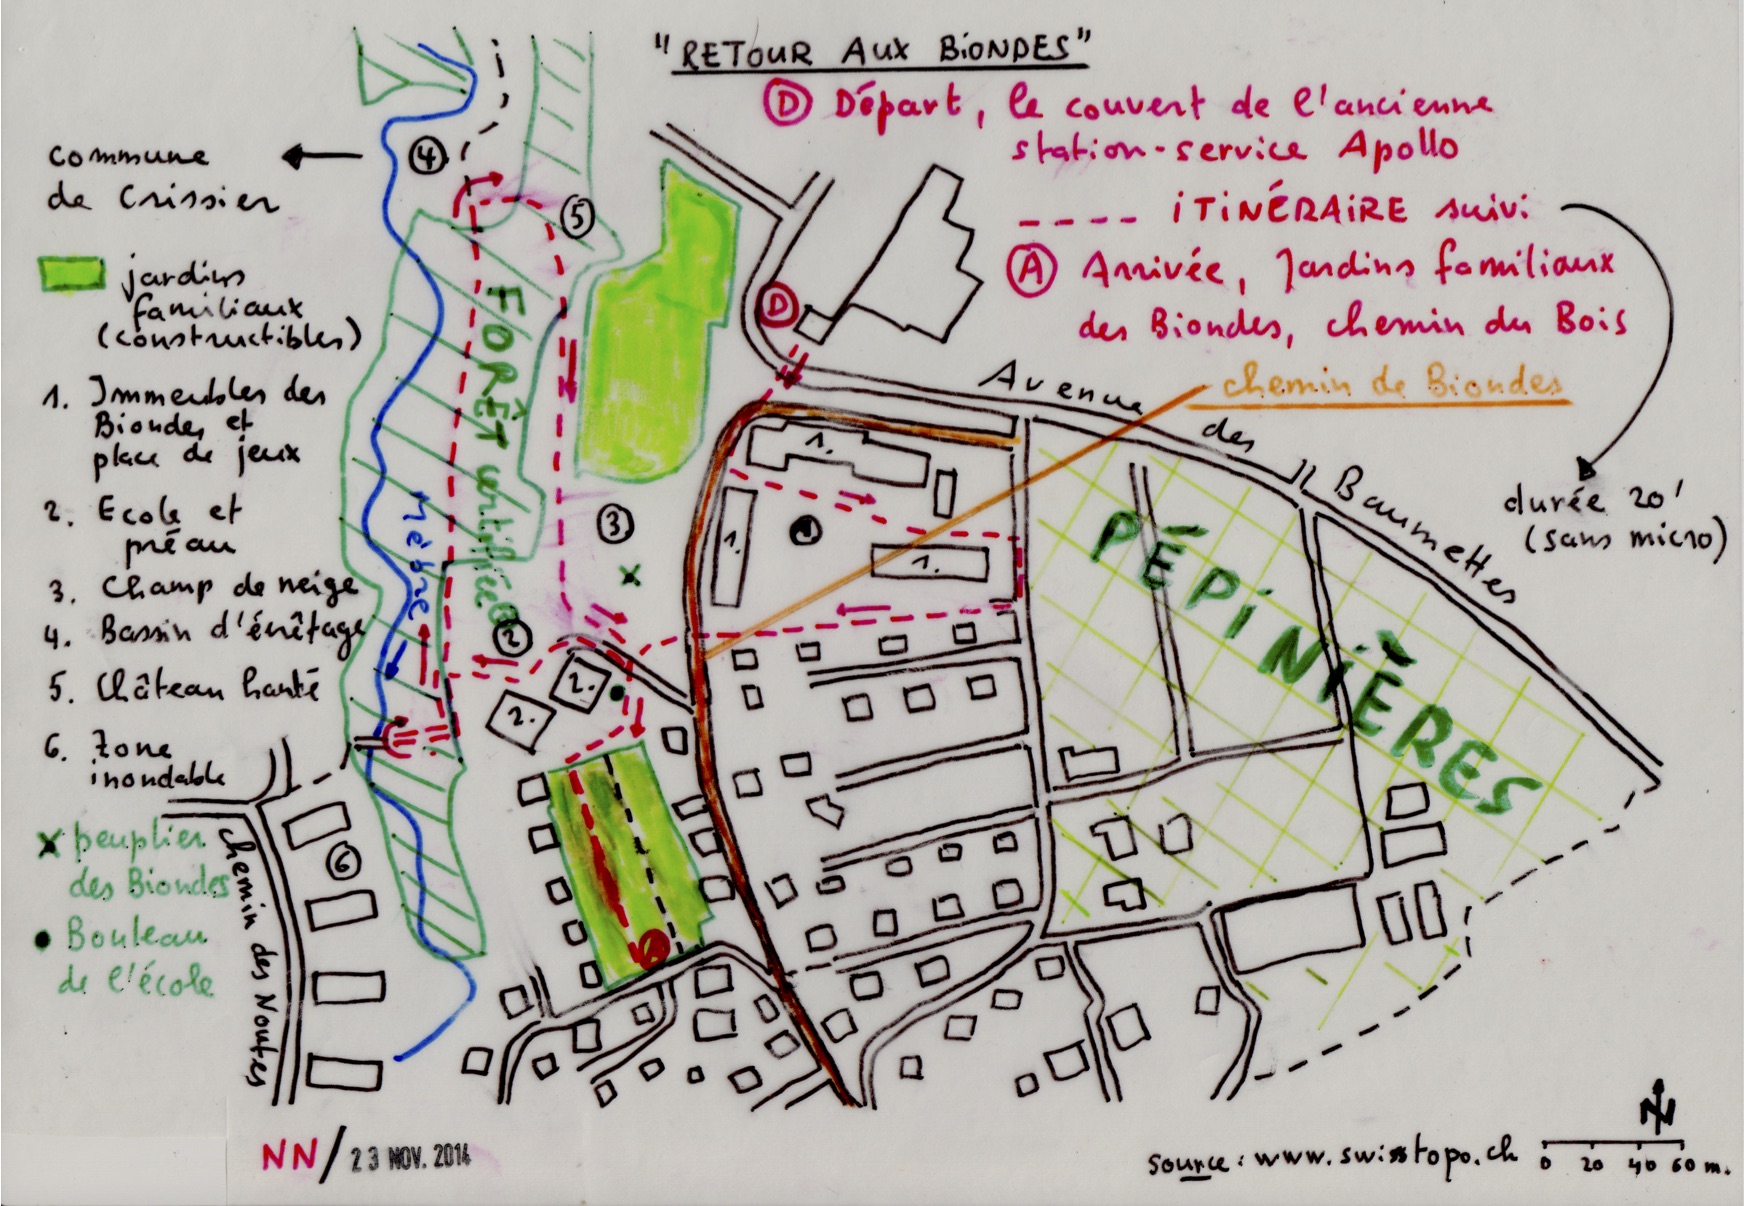 "RETOUR AUX BIONDES"
D Départ, le couvert de l'ancienne
station-service Apollo
---- ITINÉRAIRE suivi
A Arrivée, Jardins familiaux
des Biondes, chemin du Bois
chemin de Biondes
durée 20'
(sans micro)
commune
de Crissier
jardins
familiaux
(constructibles)
1. Immeubles des
Biondes et
place de jeux
2. Ecole et
préau
3. Champ de neige
4. Bassin d'énêtage
5. Château hanté
6. Zone
inondable
x peuplier
des Biondes
• Bouleau
de l'école
4
5
D
FORÊT
Mèbre
3
1.
1.
1.
1
2
2.
2.
6
A
Avenue des Baumettes
PÉPINIÈRES
chemin des Noutes
NN/23 NOV. 2014
source: www.swisstopo.ch
N
0 20 40 60 m.